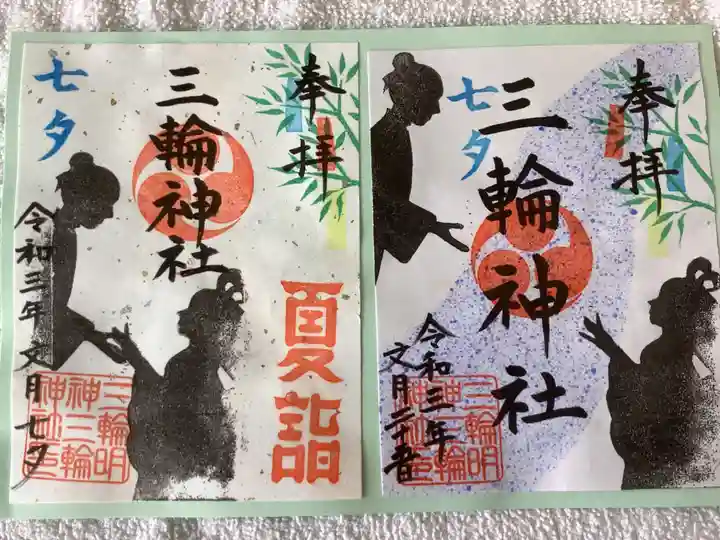 奉拝
三輪神社
七夕
令和三年文月七夕
夏詣
三輪明
神三輪
神社印
奉拝
三輪神社
七夕
令和三年
文月二十五日
三輪明
神三輪
神社印